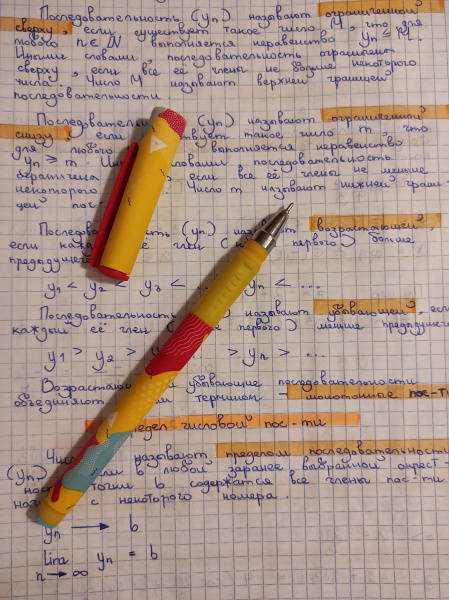 Последовательность (yn) называют ограниченной
сверху, если существует такое число M, что для
любого n ∈ N выполняется неравенство yn ≤ M.
Иными словами последовательность ограничена
сверху, если все её члены не больше некоторого
числа. Число M называют верхней границей
последовательности
(yn) называют ограниченной
снизу, если такое число m, что
для любого выполняется неравенство
yn ≥ m последовательность
если все её члены не меньше
некоторого Число m называют нижней грани-
цей пос-
(yn) возрастающей,
если её член ( первого) больше
y1 < y2 < y3 < ... yn < ...
Последовательность называют убывающей, если
каждый её член ( первого) меньше
y1 > y2 > > yn > ...
убывающие последовательности
объединяют термином - монотонные пос-ти
числовой пос-ти
называют пределом последовательности
(yn) если в любой заранее выбранной окрест-
точки b содержатся все члены пос-ти
с некоторого номера.
yn → b
Lim yn = b
n → ∞